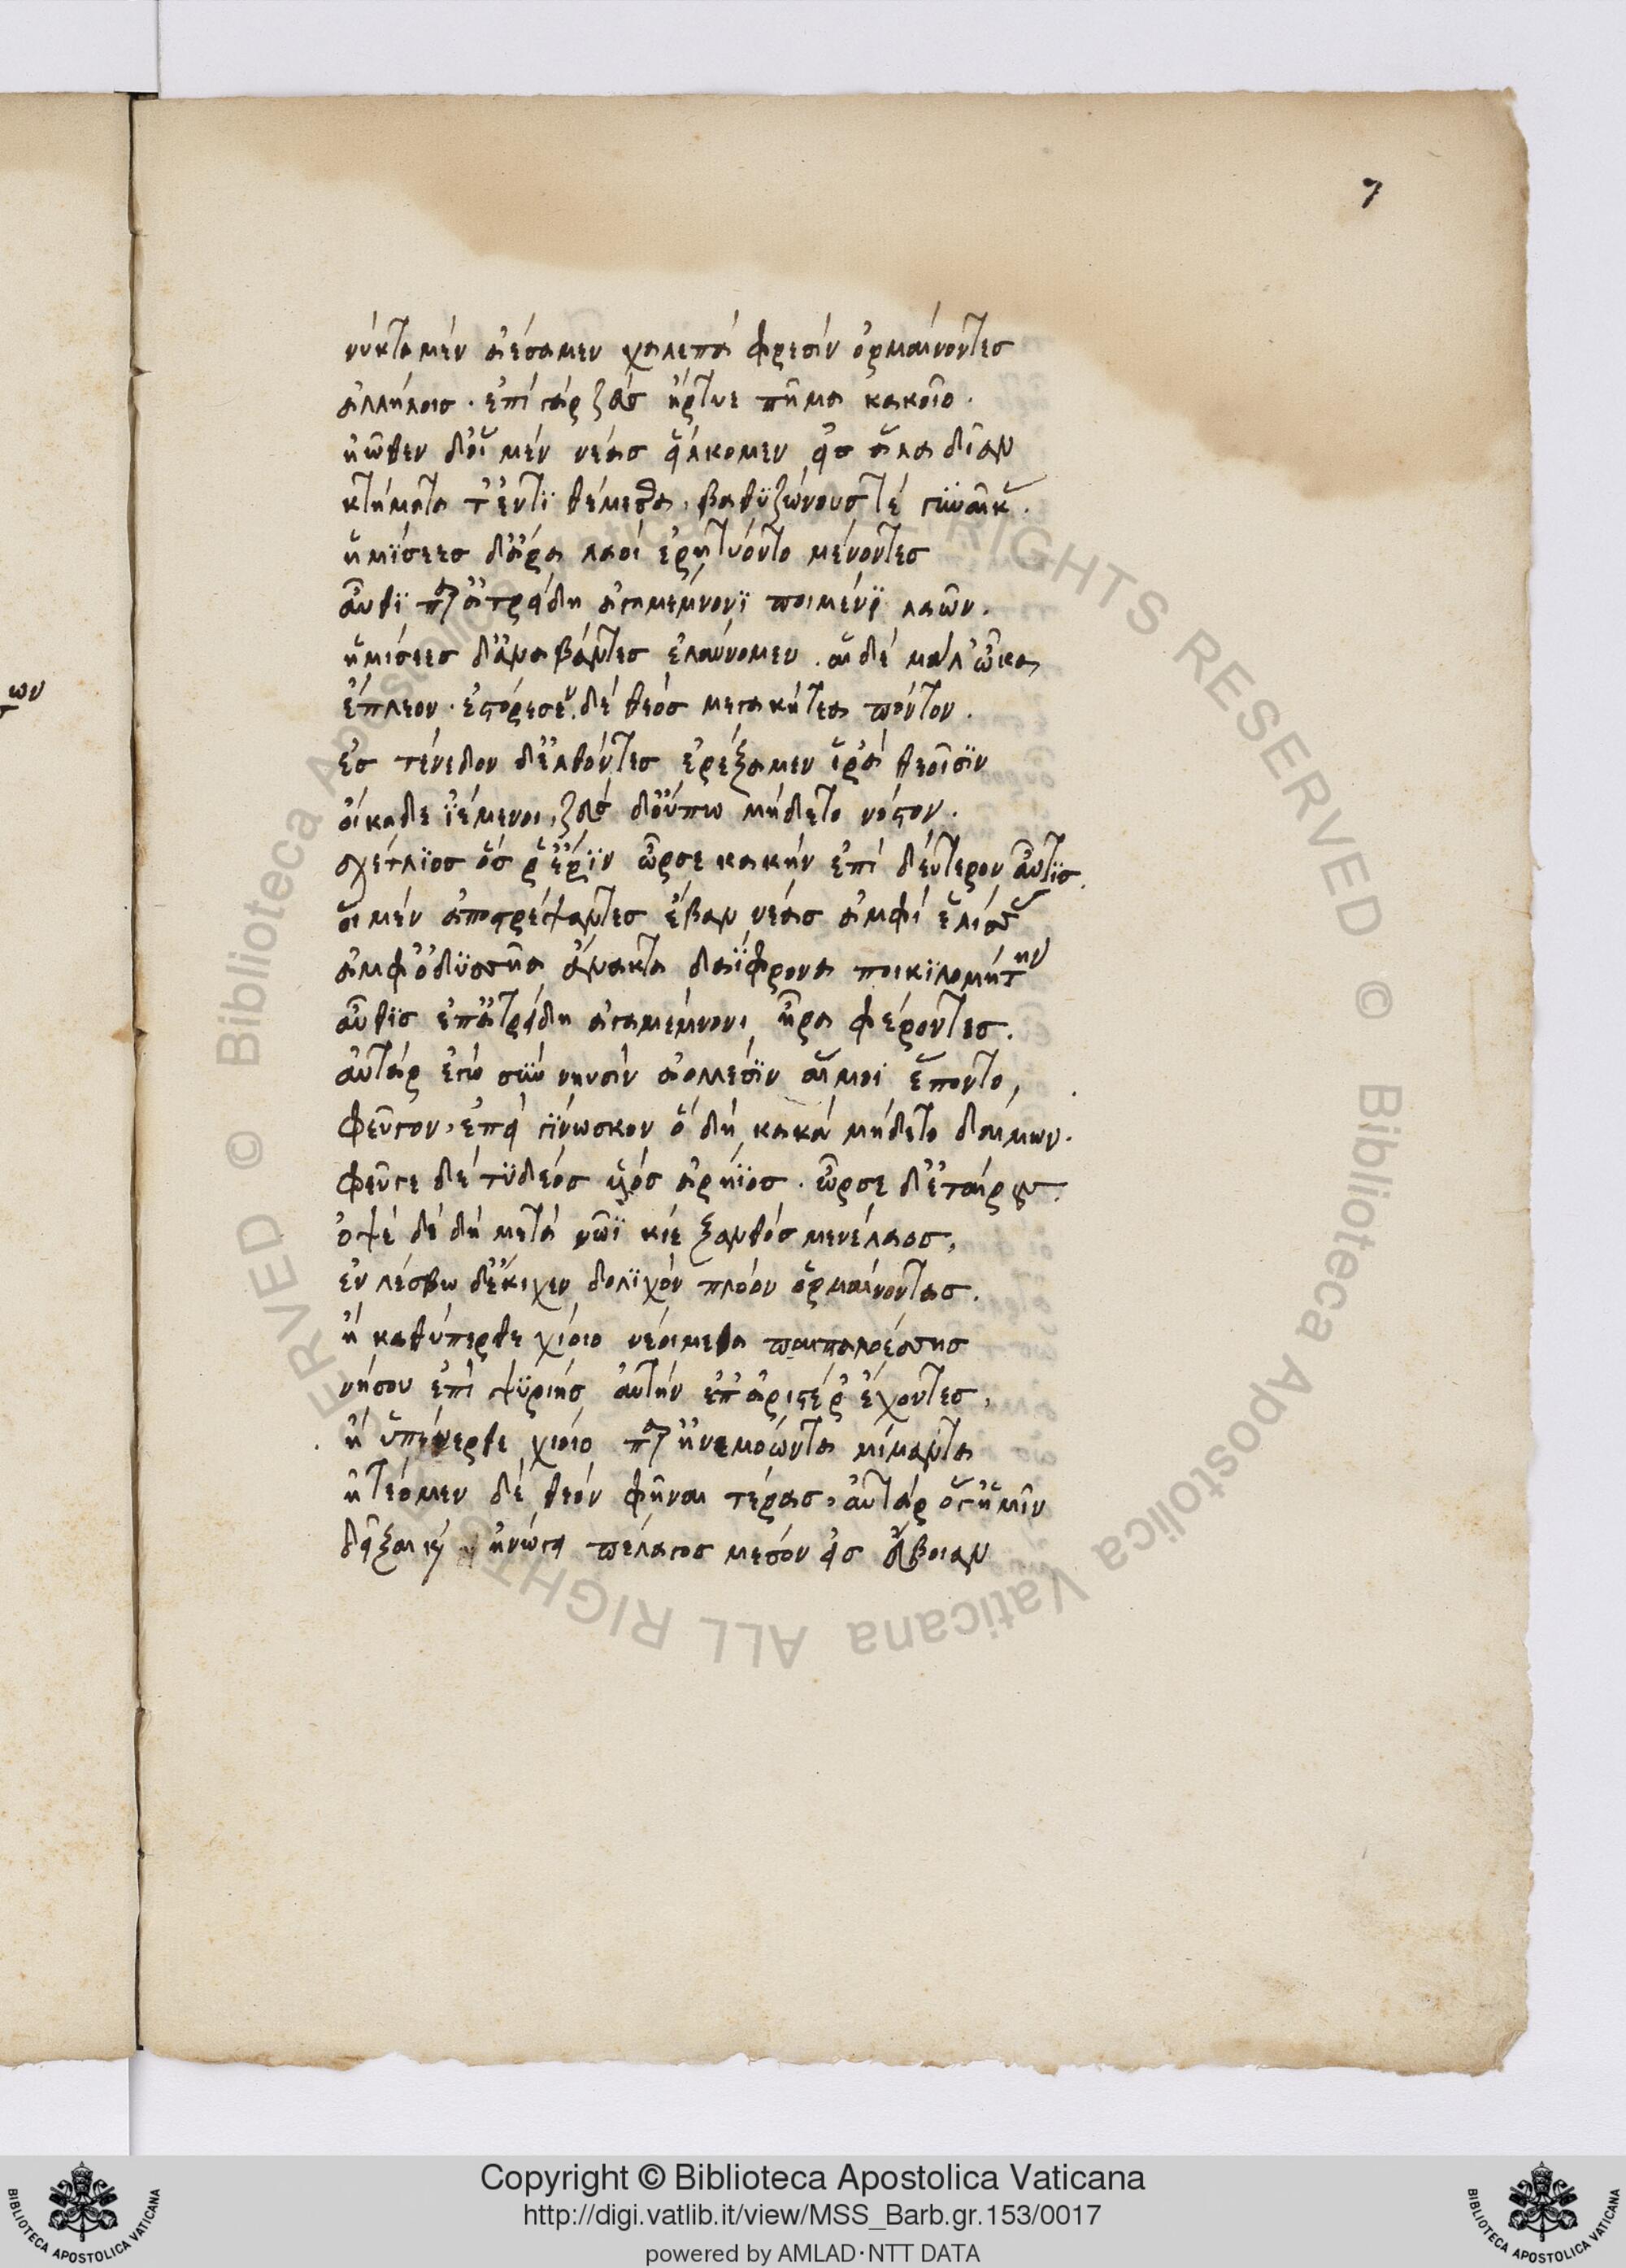 7
νύκτα μὲν ἀέσαμεν χαλεπὰ φρεσὶν ὁρμαίνοντες
ἀλλήλοις· ἐπὶ γὰρ ζεὺς ἤρτυε πῆμα κακοῖο.
ἠῶθεν δ' οἱ μὲν νέας εἵλκομεν εἰς ἅλα δῖαν
κτήματά τ' ἐντιθέμεσθα, βαθυζώνους τὲ γυναῖκας.
ἡμίσεες δ' ἄρα λαοὶ ἐρητύοντο μένοντες
αὖθι παρ' ἀτρείδη ἀγαμέμνονι ποιμένι λαῶν.
ἡμίσεες δ' ἀναβάντες ἐλαύνομεν. αἱ δὲ μάλ' ὦκα
ἔπλεον· ἐστόρεσεν δὲ θεὸς μεγακήτεα πόντον.
ἐς τένεδον δ' ἐλθόντες ἐρέξαμεν ἱρὰ θεοῖσιν
οἴκαδε ἱέμενοι, ζεὺς δ' οὔπω μήδετο νόστον.
σχέτλιος ὅς ῥ' ἔριν ὦρσε κακὴν ἐπὶ δεύτερον αὖτις.
οἱ μὲν ἀποστρέψαντες ἔβαν νέας ἀμφιελίσσας
ἀμφ' ὀδυσσῆα ἄνακτα δαΐφρονα ποικιλομήτην
αὖθις ἐπ' ἀτρείδη ἀγαμέμνονι ἦρα φέροντες.
αὐτὰρ ἐγὼ σὺν νηυσὶν ἀολλέσιν αἵ μοι ἕποντο,
φεῦγον, ἐπεὶ γίνωσκον ὃ δὴ κακὰ μήδετο δαίμων.
φεῦγε δὲ τυδέος υἱὸς ἀρήϊος. ὦρσε δ' ἑταίρους.
ὀψὲ δὲ δὴ μετὰ νῶϊ κίε ξανθὸς μενέλαος,
ἐν λέσβω δ' ἔκιχεν δολιχὸν πλόον ὁρμαίνοντας.
ἢ καθύπερθε χίοιο νεοίμεθα παιπαλοέσσης
νήσου ἐπὶ ψυρίης αὐτὴν ἐπ' ἀριστέρ' ἔχοντες,
ἢ ὑπένερθε χίοιο παρ' ἠνεμόωντα μίμαντα
ἠτέομεν δὲ θεὸν φῆναι τέρας, αὐτὰρ ὅγ' ἡμῖν
δεῖξαι καὶ ἠνώγει πέλαγος μέσον εἰς εὔβοιαν
ων
Copyright © Biblioteca Apostolica Vaticana
http://digi.vatlib.it/view/MSS_Barb.gr.153/0017
powered by AMLAD·NTT DATA